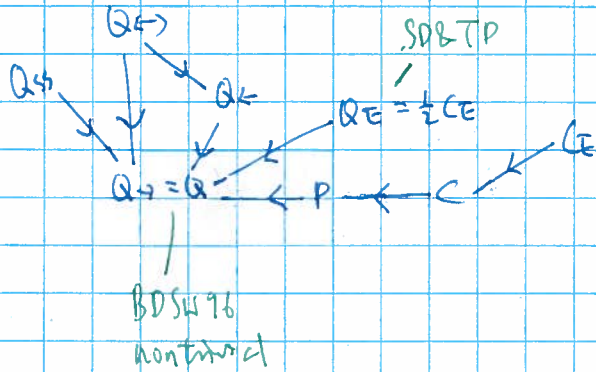 Q↔
SD&TP
Q⇆ Q← Q_E = ½ C_E C_E
Q→ = Q P C
BDSW 96
nontrivial